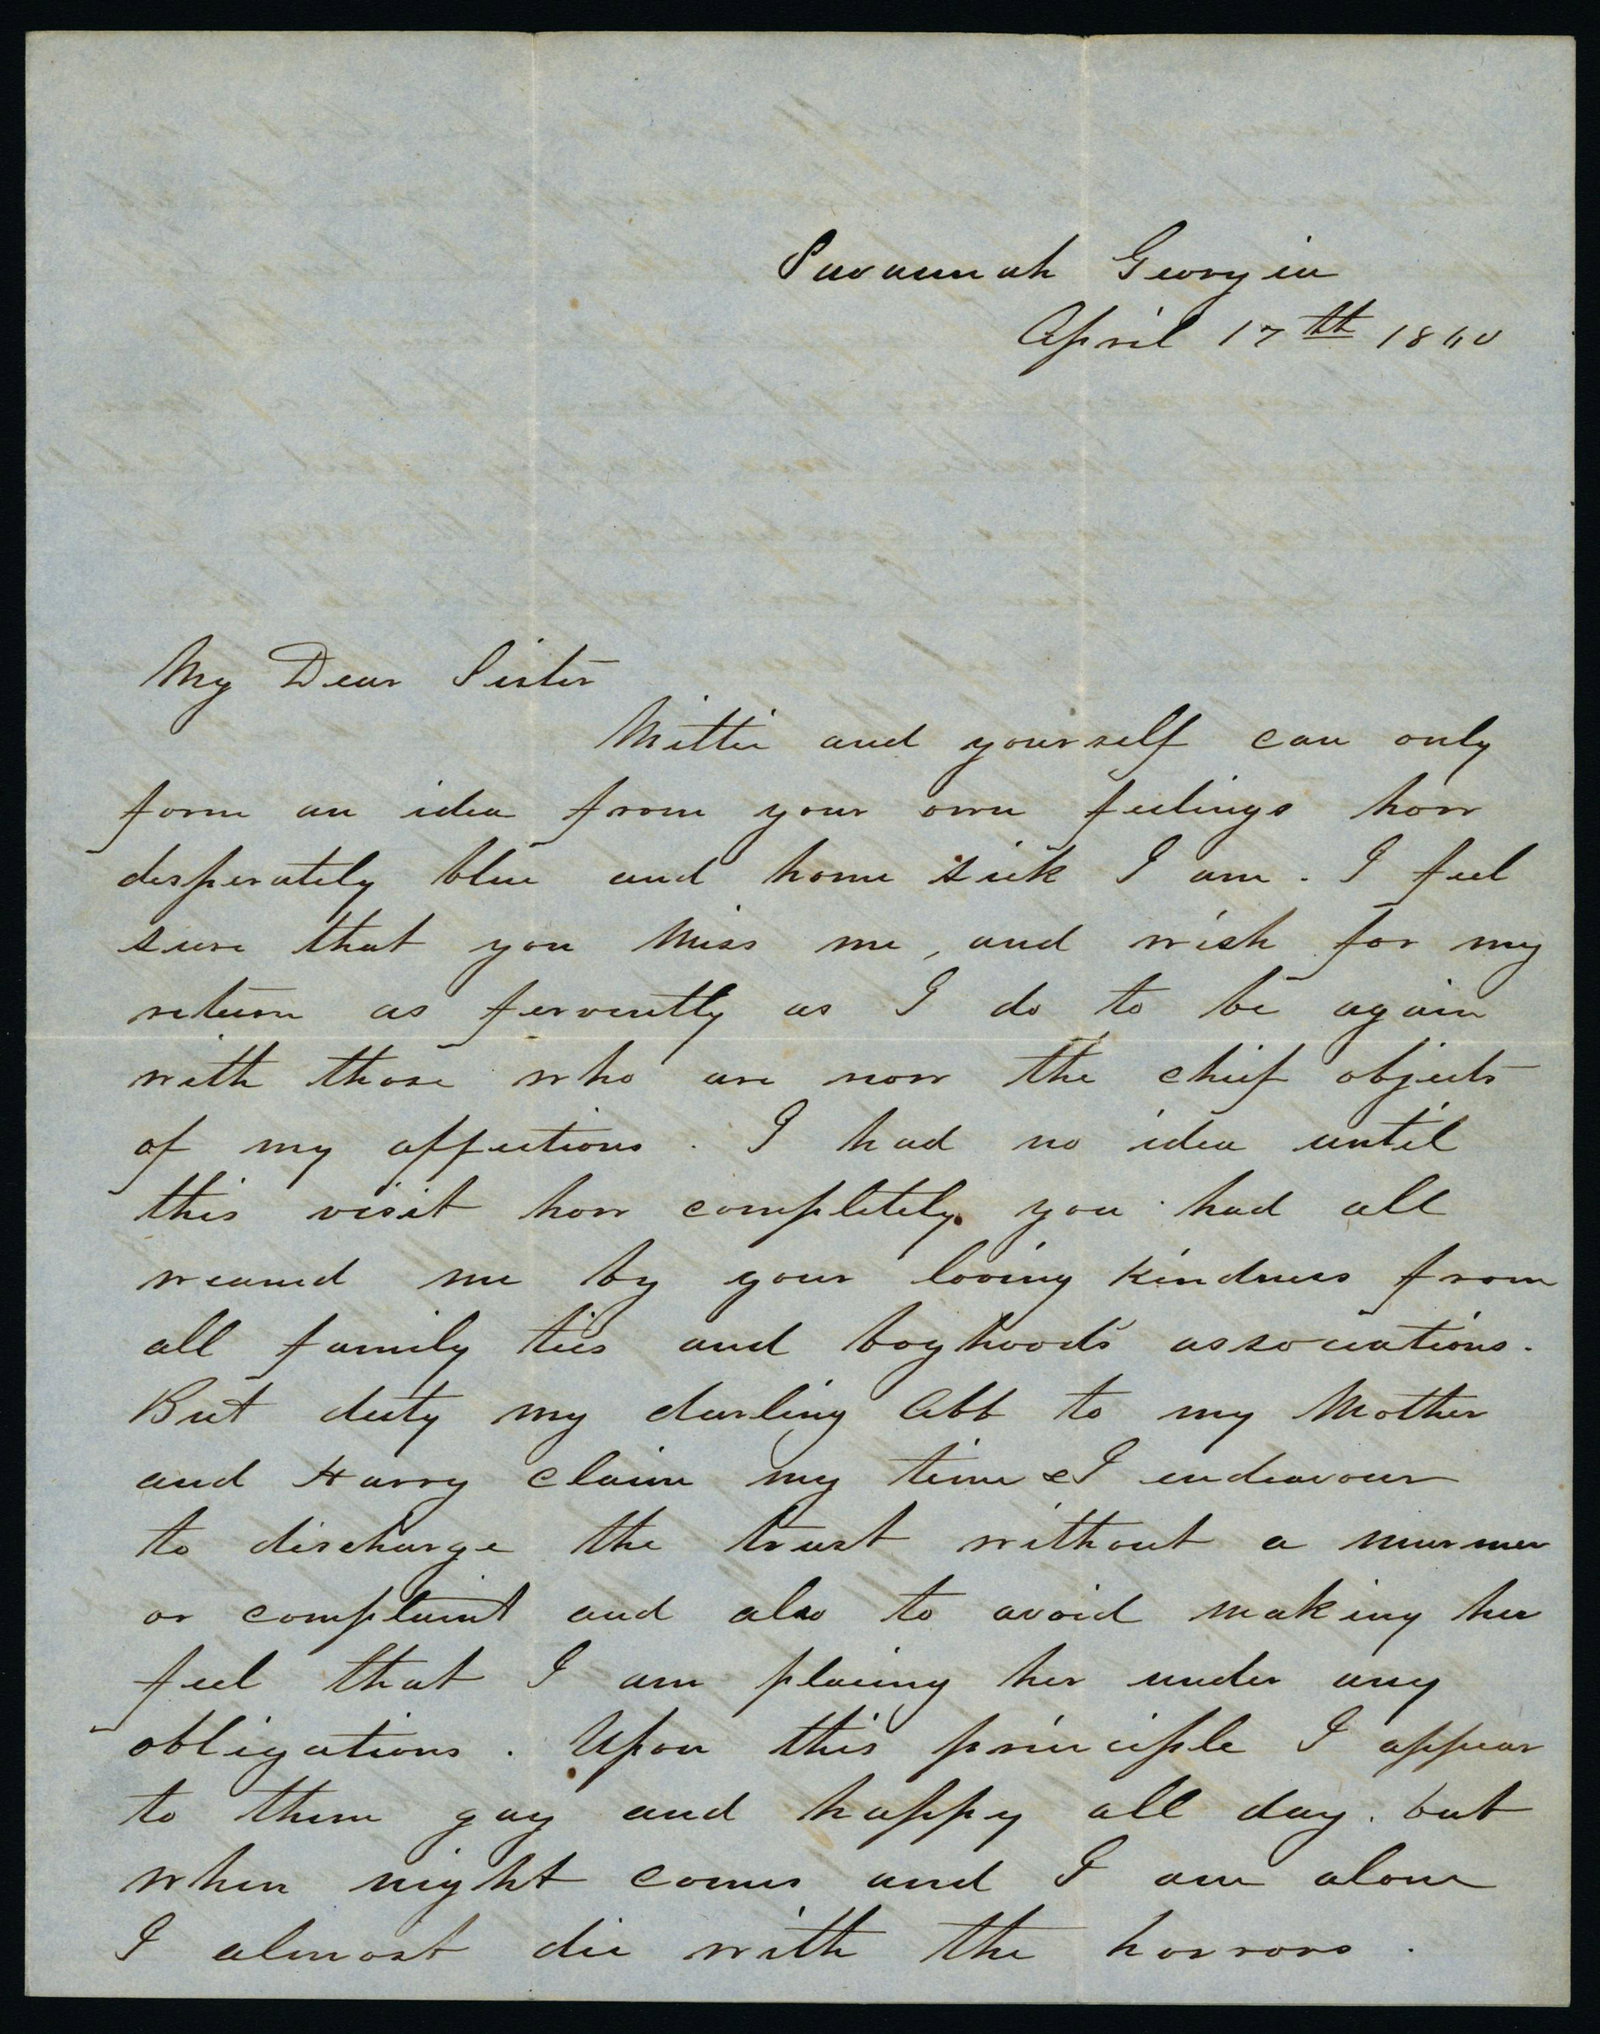 Savannah Georgia
April 17th 1860
My Dear Sister
Mittie and yourself can only
form an idea from your own feelings how
desperately blue and home sick I am. I feel
sure that you Miss me, and wish for my
return as fervently as I do to be again
with those who are now the chief objects
of my affections. I had no idea until
this visit how completely you had all
weaned me by your loving kindness from
all family ties and boyhoods associations.
But duty my darling Abb to my Mother
and Harry claim my time & I endeavour
to discharge the trust without a murmer
or complaint and also to avoid making her
feel that I am placing her under any
obligations. Upon this principle I appear
to them gay and happy all day. but
when night comes and I am alone
I almost die with the horrors.